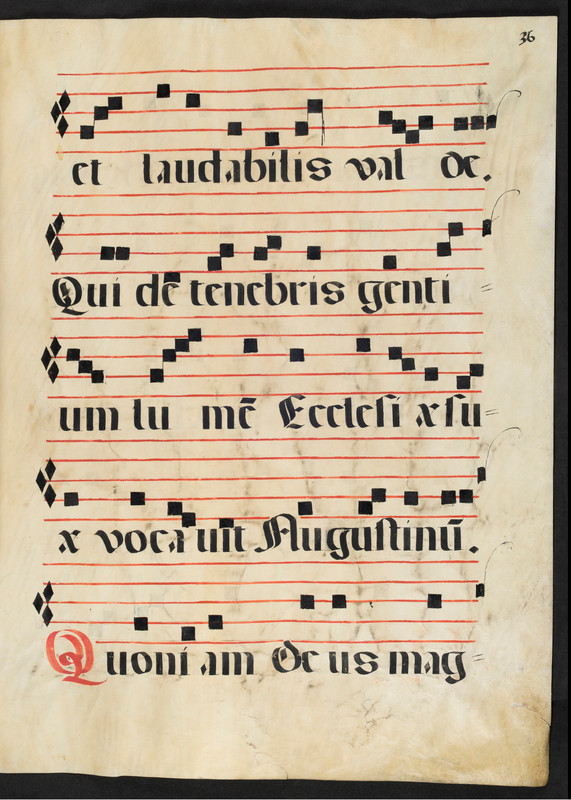 36
et laudabilis val de.
Qui de tenebris genti =
um lu mē Ecclesi xsu=
x vocauit Augustinū.
Quoni am De us mag=